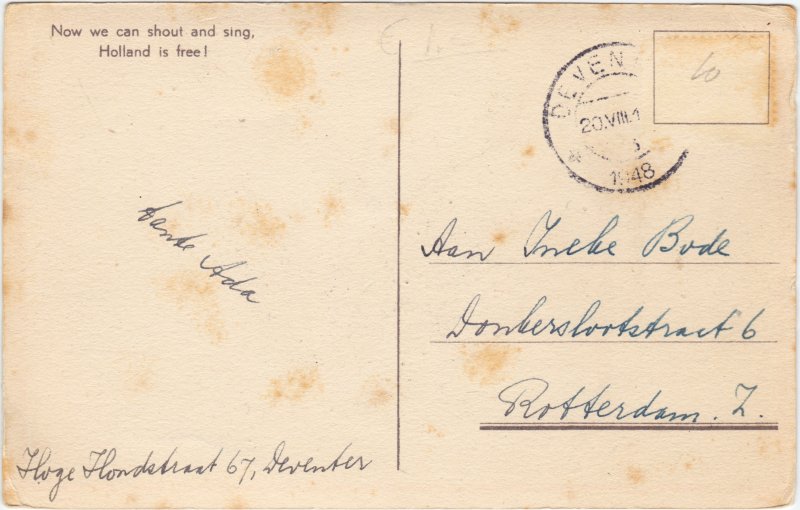 Now we can shout and sing,
Holland is free!
€ 1.-
DEVEN
20.VIII.1
1948
10
tante Ada
Aan Ineke Bode
Donkerslootstraat 6
Rotterdam. Z.
Hoge Hondstraat 67, Deventer